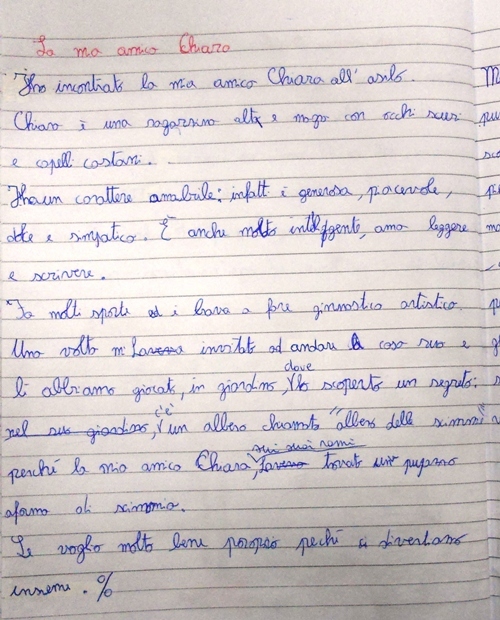 La mia amica Chiara
Ho incontrato la mia amica Chiara all' asilo.
Chiara è una ragazzina alta e magra con occhi scuri
e capelli castani.
Ha un carattere amabile: infatti è generosa, piacevole,
dolce e simpatica. È anche molto intelligente, ama leggere
e scrivere.
Fa molti sports ed è brava a fare ginnastica artistica.
Una volta m' ha invitato ad andare a casa sua e
lì abbiamo giocato, in giardino, dove ho scoperto un segreto:
nel suo giardino, c'è un albero chiamato "albero delle scimmie"
perché la mia amica Chiara, sui suoi rami trovato un pupazzo
a forma di scimmia.
Le voglio molto bene perché ci divertiamo
insieme. %